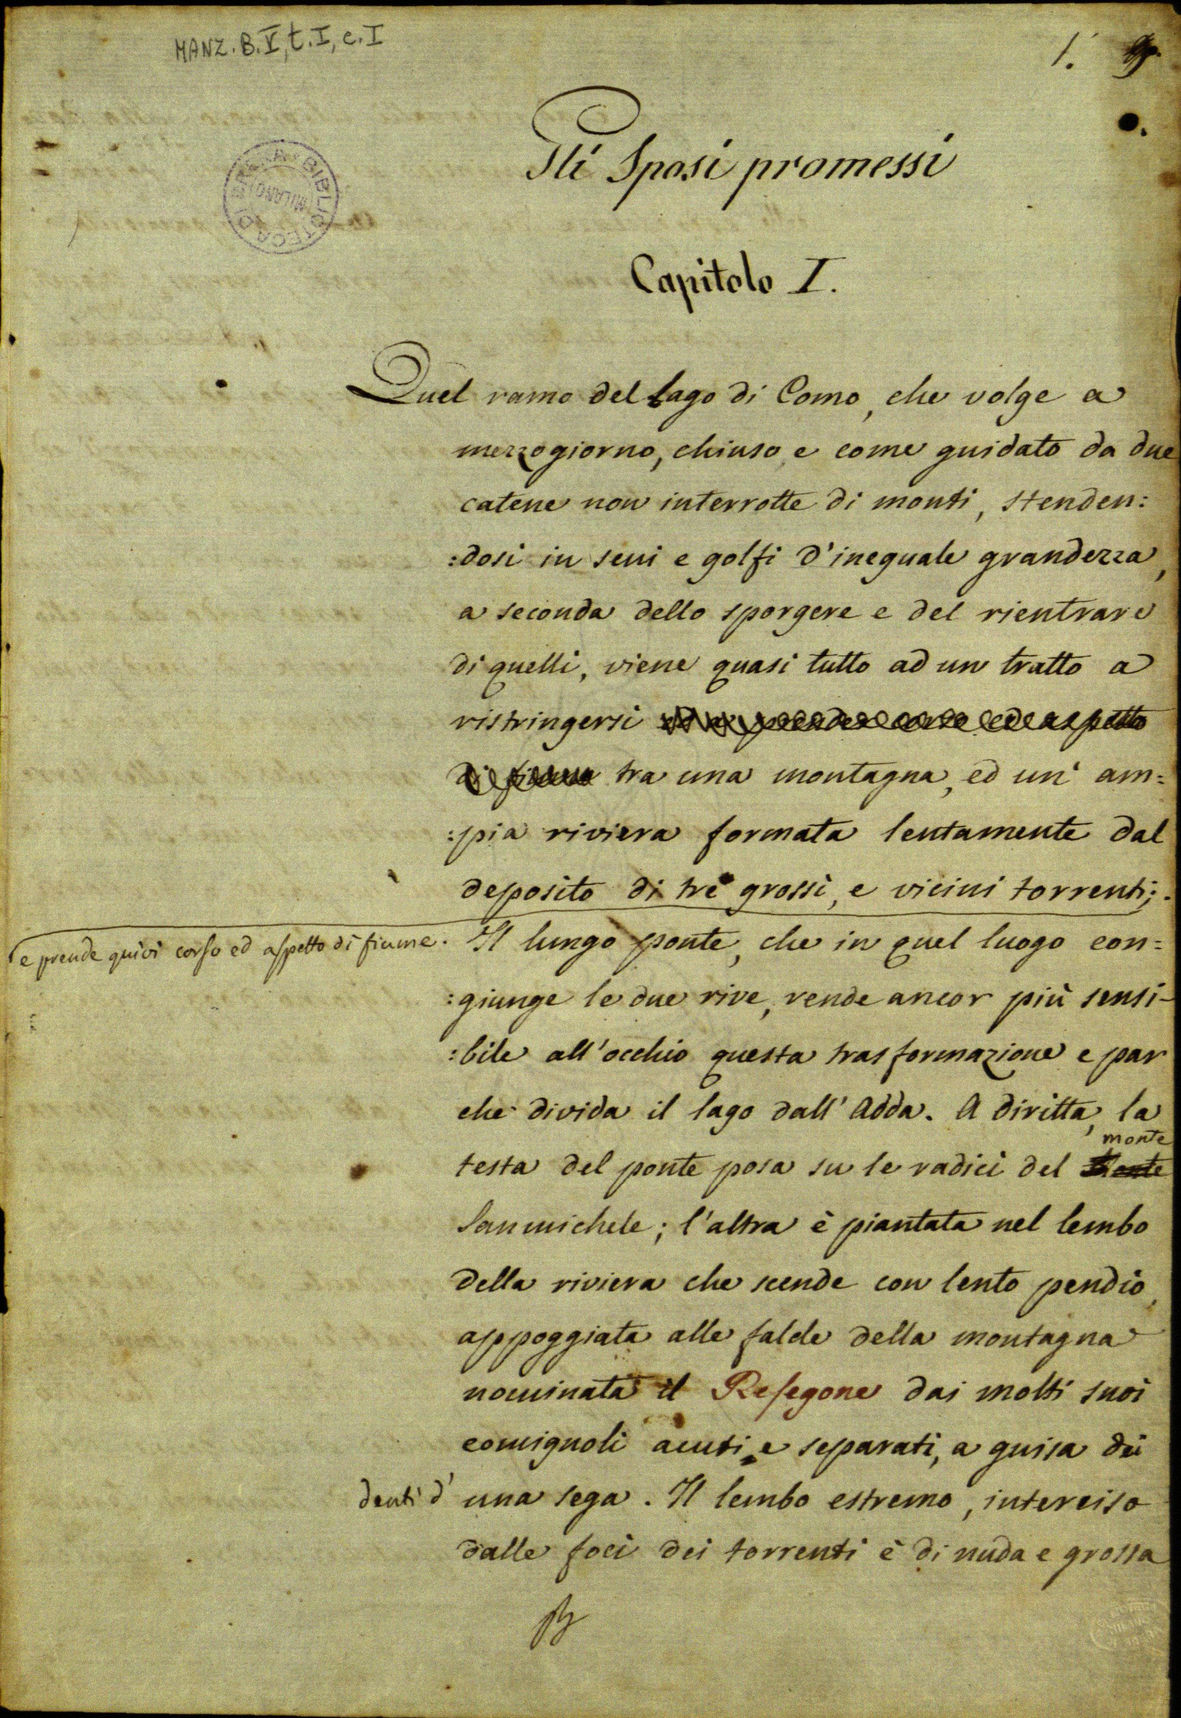 MANZ. B. V, t. I, c. I
1.
BIBLIOTECA DI BRERA
MILANO
Gli Sposi promessi
Capitolo I.
Quel ramo del lago di Como, che volge a
mezzogiorno, chiuso e come guidato da due
catene non interrotte di monti, stenden:
:dosi in seni e golfi d'ineguale grandezza,
a seconda dello sporgere e del rientrare
di quelli, viene quasi tutto ad un tratto a
ristringersi prender corso ed aspetto
di fiume tra una montagna, ed un' am:
:pia riviera formata lentamente dal
deposito di tre grossi, e vicini torrenti;.
e prende quivi corso ed aspetto di fiume. Il lungo ponte, che in quel luogo con:
:giunge le due rive, rende ancor più sensi-
:bile all'occhio questa trasformazione e par
che divida il lago dall'Adda. A diritta, la
monte
testa del ponte posa su le radici del
Sanmichele; l'altra è piantata nel lembo
della riviera che scende con lento pendio,
appoggiata alle falde della montagna
nominata il Resegone dai molti suoi
comignoli acuti e separati, a guisa dei
denti d' una sega. Il lembo estremo, interciso
dalle foci dei torrenti è di nuda e grossa